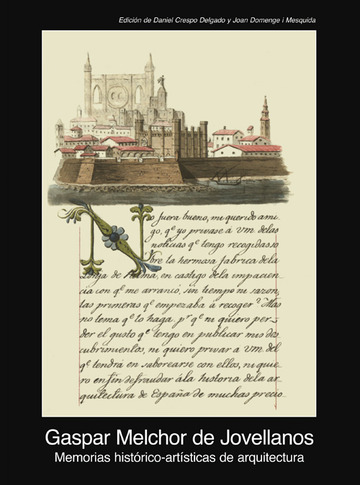 Edición de Daniel Crespo Delgado y Joan Domenge i Mesquida
No fuera bueno, mi querido ami-
go, qe yo privase á Vm. delas
noticias qe tengo recogidas so
bre la hermosa fabrica dela
Lonja de Palma, en castigo dela impacien
cia con qe me arrancó, sin tiempo ni razon,
las primeras qe empezaba á recoger? Mas
no tema qe lo haga, pr qe ni quiero per-
der el gusto qe tengo en publicar mis des
cubrimientos, ni quiero privar a Vm. del
qe tendrá en saborearse con ellos, ni quie
ro en fin defraudar ála historia dela ar
quitectura de España de muchas precio.
Gaspar Melchor de Jovellanos
Memorias histórico-artísticas de arquitectura